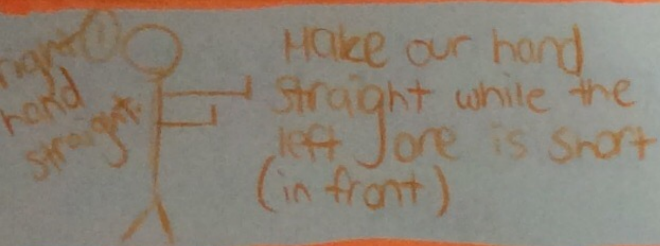 right ①
hand
straight.
Make our hand
straight while the
left one is short
(in front)